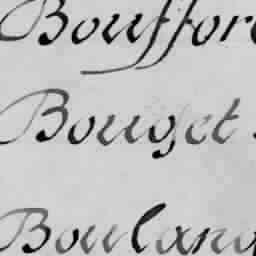 Boufford
Bouget
Boulang